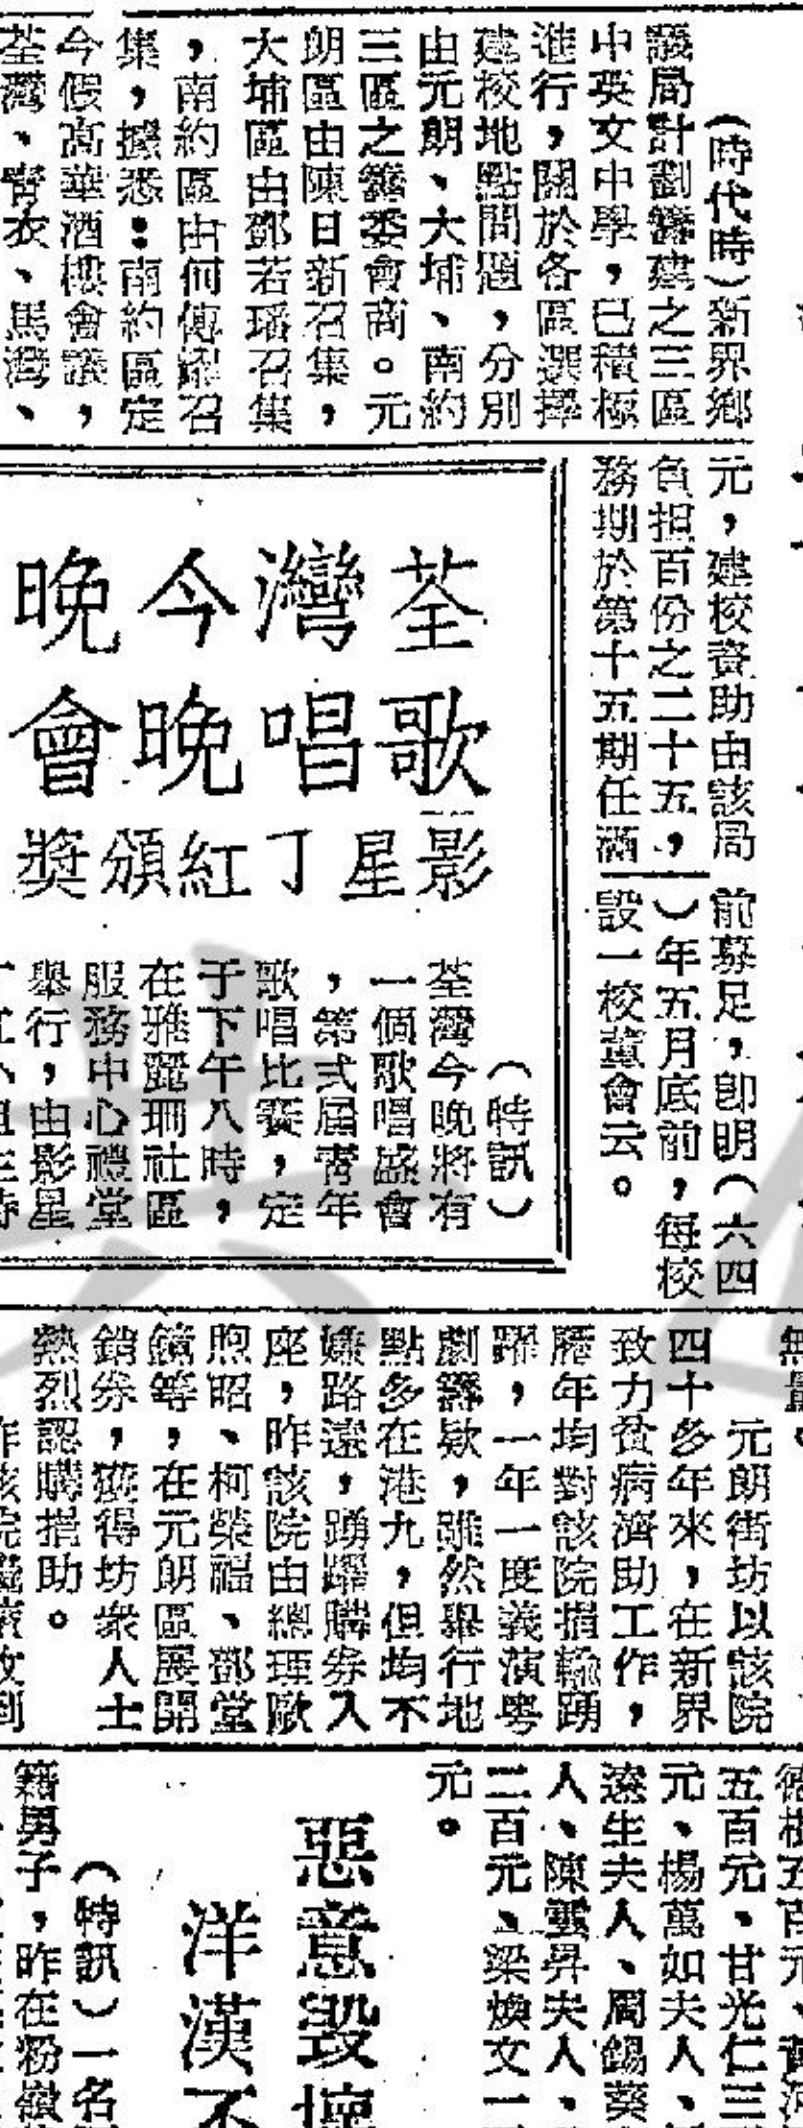 （時代時）新界鄉
議局計劃籌建之三區
中英文中學，已積極
進行，關於各區選擇
建校地點問題，分別
由元朗、大埔、南約
三區之籌委會商。元
朗區由陳日新召集，
大埔區由鄧若璠召集
，南約區由何傳耀召
集，據悉：南約區定
今假高華酒樓會議，
荃灣、青衣、馬灣、
元，建校資助由該局
負担百份之二十五，
務期於第十五期任滿
前募足，即明（六四
）年五月底前，每校
設一校董會云。
荃灣今晚
歌唱晚會
影星丁紅頒獎
（特訊）
荃灣今晚將有
一個歌唱盛會
，第弍屆青年
歌唱比賽，定
于下午八時，
在雅麗珊社區
服務中心禮堂
舉行，由影星
元朗街坊以該院
四十多年來，在新界
致力貧病濟助工作，
歷年均對該院捐輸踴
躍，一年一度義演粵
劇籌欵，雖然舉行地
點多在港九，但均不
嫌路遠，踴躍購券入
座，昨該院由總理歐
煦昭、柯榮福、鄧堂
鏡等，在元朗區展開
銷券，獲得坊衆人士
熱烈認購捐助。
五百元、甘光仁三
元、楊萬如夫人、
遠生夫人、周錫葵
人、陳雲昇夫人、
二百元、梁煥文一
元。
惡意毀壞
洋漢不
（特訊）一名
籍男子，昨在粉嶺